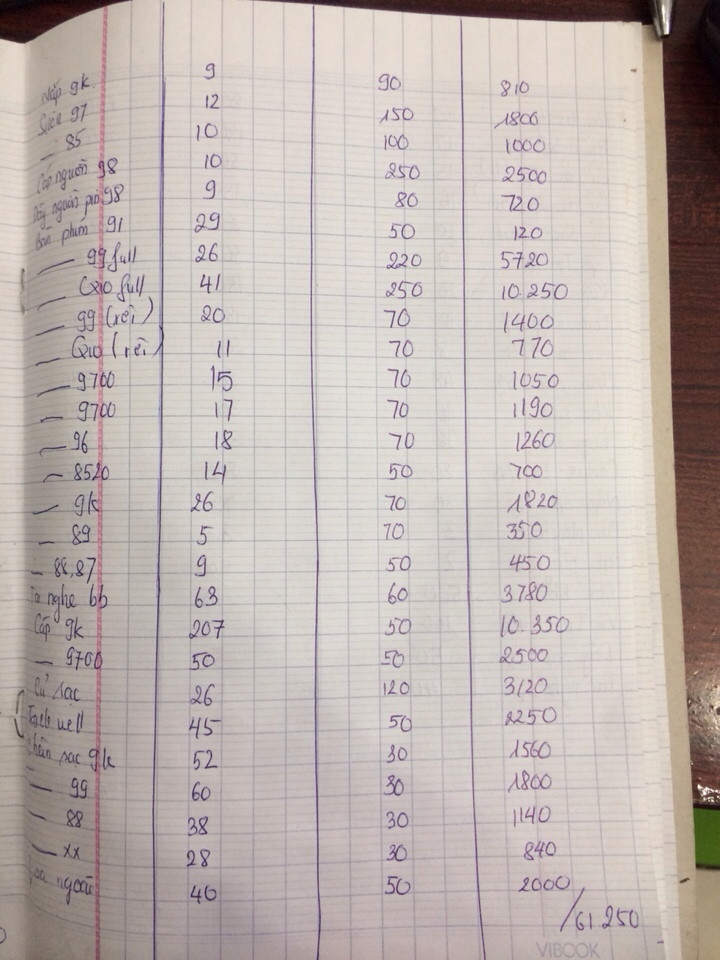 Nắp 9k. 9 90 810
Sườn 97 12 150 1800
— 85 10 100 1000
Cáp nguồn 98 10 250 2500
Dây nguồn pin 98 9 80 720
Bàn phím 91 29 50 120
— 99 full 26 220 5720
— Q10 full 41 250 10.250
— 99 (rời) 20 70 1400
— Q10 (rời) 11 70 770
— 9700 15 70 1050
— 9700 17 70 1190
— 96 18 70 1260
— 8520 14 50 700
— 9k 26 70 1820
— 89 5 70 350
— 88,87 9 50 450
Tai nghe bb 63 60 3780
Cáp 9k 207 50 10.350
— 9700 50 50 2500
Củ sạc 26 120 3120
45 50 2250
Chân sạc 9k 52 30 1560
— 99 60 30 1800
— 88 38 30 1140
— xx 28 30 840
Loa ngoài 40 50 2000
/61250
VIBOOK